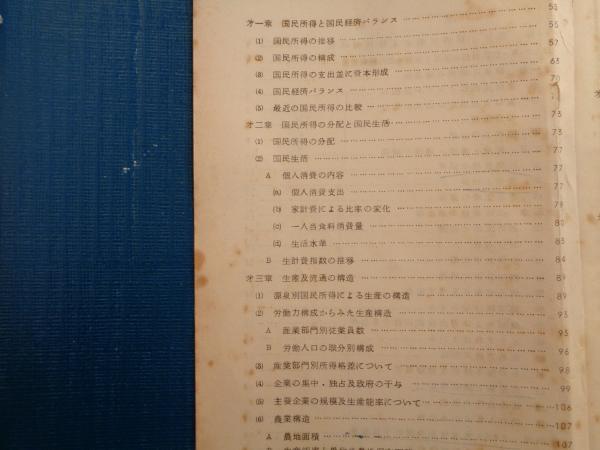 53
才一章 国民所得と国民経済バランス 55
(1) 国民所得の推移 55
(2) 国民所得の構成 57
(3) 国民所得の支出並に資本形成 63
(4) 国民経済バランス 70
(5) 最近の国民所得の比較
才二章 国民所得の分配と国民生活 73
(1) 国民所得の分配 73
(2) 国民生活 77
A 個人消費の内容 77
(a) 個人消費支出 77
(b) 家計費による比率の変化 79
(c) 一人当食料消費量 80
(d) 生活水準 83
B 生計費指数の推移 84
才三章 生産及流通の構造 89
(1) 源泉別国民所得による生産の構造 89
(2) 労働力構成からみた生産構造 93
A 産業部門別従業員数 95
B 労働人口の職分別構成 96
(3) 産業部門別所得格差について 98
(4) 企業の集中・独占及政府の干与 99
(5) 主要企業の規模及生産能率について 106
(6) 農業構造 107
A 農地面積 107